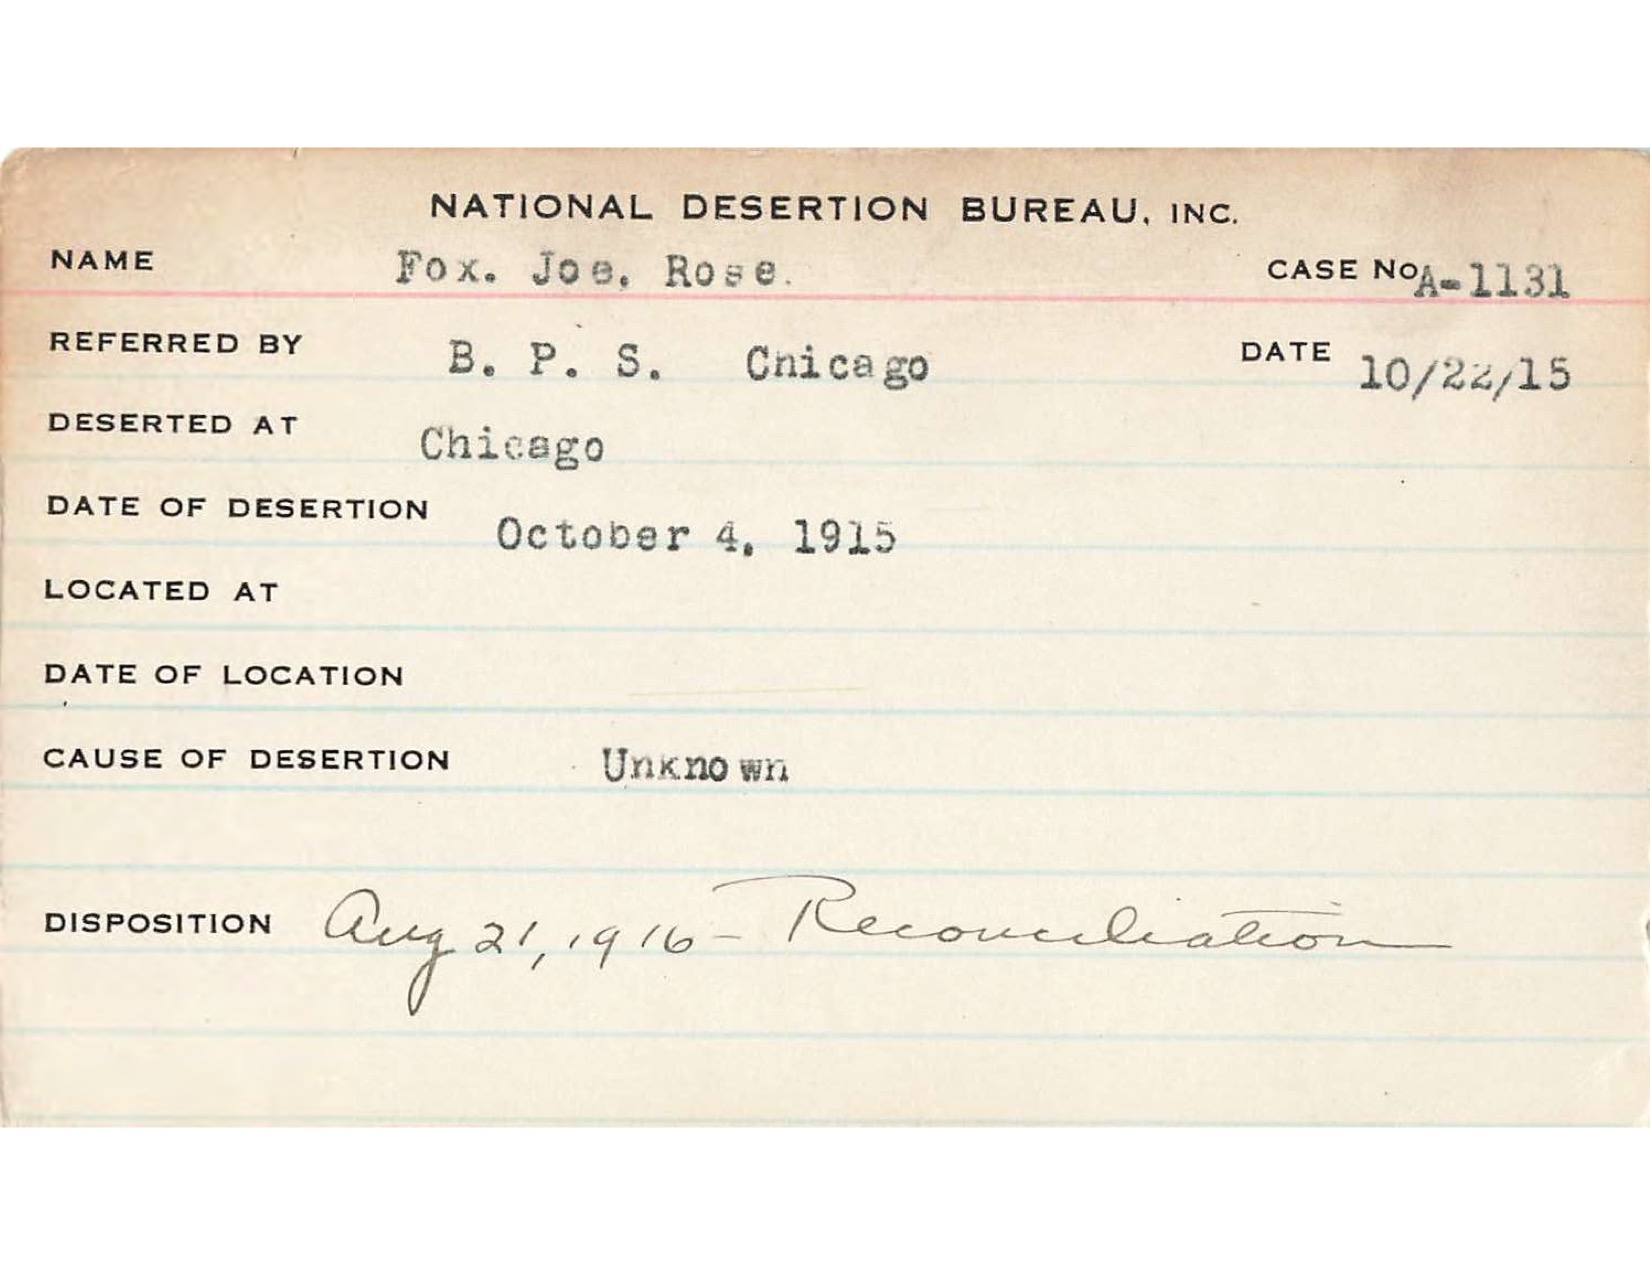 NATIONAL DESERTION BUREAU, INC.
NAME Fox. Joe, Rose. CASE NO. A-1131
REFERRED BY B. P. S. Chicago DATE 10/22/15
DESERTED AT Chicago
DATE OF DESERTION October 4, 1915
LOCATED AT
DATE OF LOCATION
CAUSE OF DESERTION Unknown
DISPOSITION Aug 21, 1916 - Reconciliation